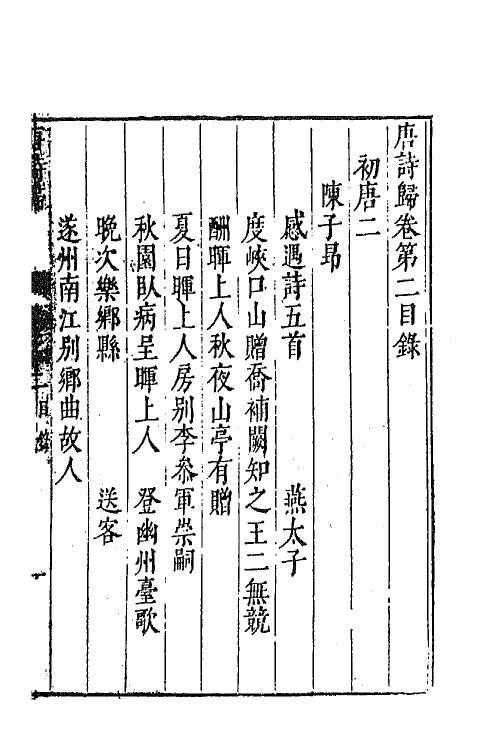 唐詩歸卷第二目錄
初唐二
陳子昻
感遇詩五首 燕太子
度峽口山贈喬補闕知之王二無競
酬暉上人秋夜山亭有贈
夏日暉上人房别李參軍崇嗣
秋園臥病呈暉上人 登幽州臺歌
晚次樂鄉縣 送客
遂州南江别鄉曲故人
目錄
一